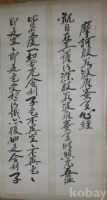 摩訶般若波羅蜜多心經
觀自在菩薩行深般若波羅蜜多時照見五蘊
皆空度一切苦厄舍利子色不異空々不異色々
即是空々即是色受想行識亦復如是舍利
kobay